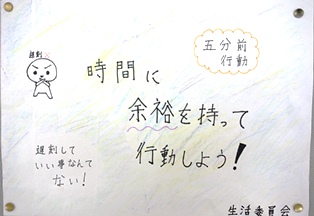 五分前
行動
遅刻×
時間に
余裕を持って
行動しよう!
遅刻して
いい事なんて
ない!
生活委員会